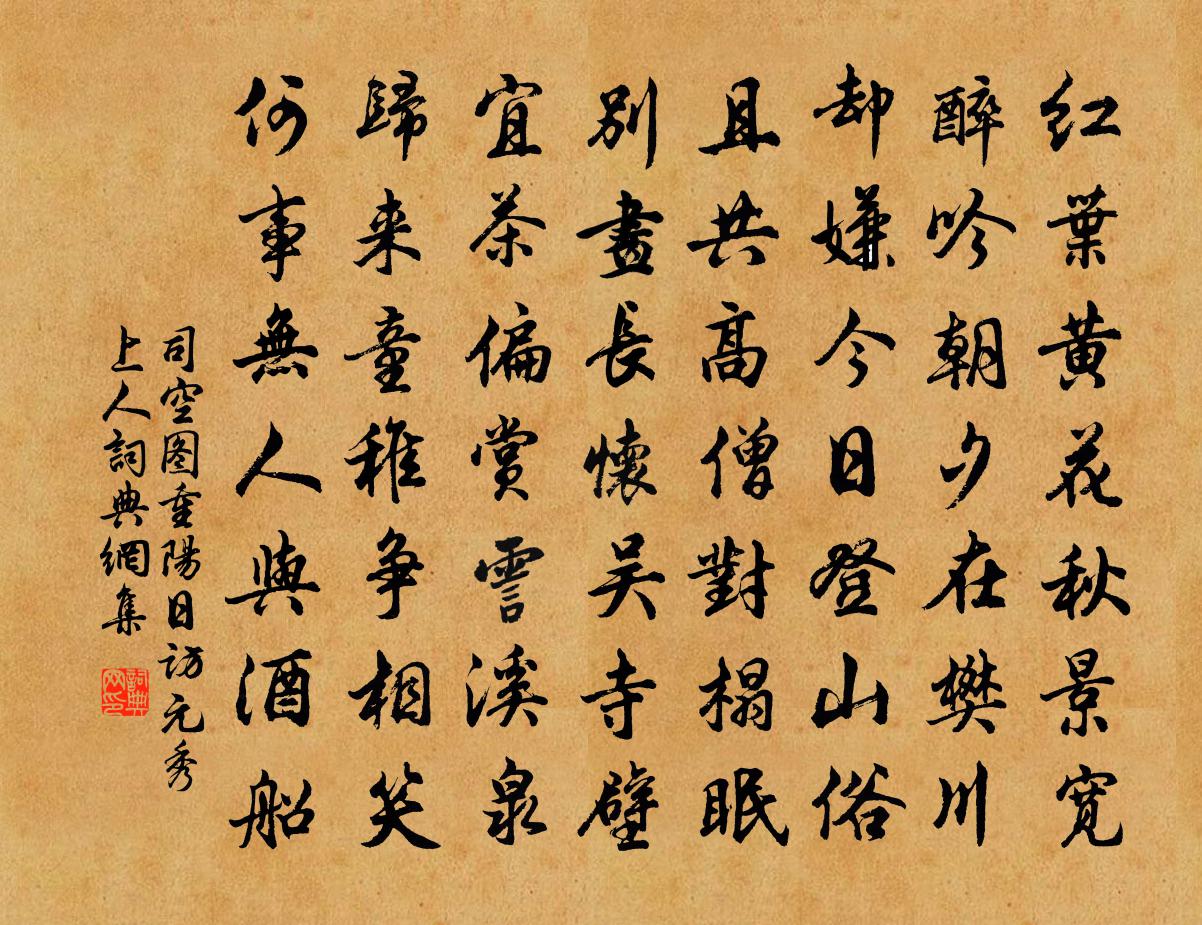 红葉黄花秋景宽
醉吟朝夕在樊川
却嫌今日登山俗
且共高僧對榻眠
别畫長懷吴寺壁
宜茶偏赏霅溪泉
歸来童稚争相笑
何事無人與酒船
司空图重陽日访元秀
上人詞典網集
詞典网印